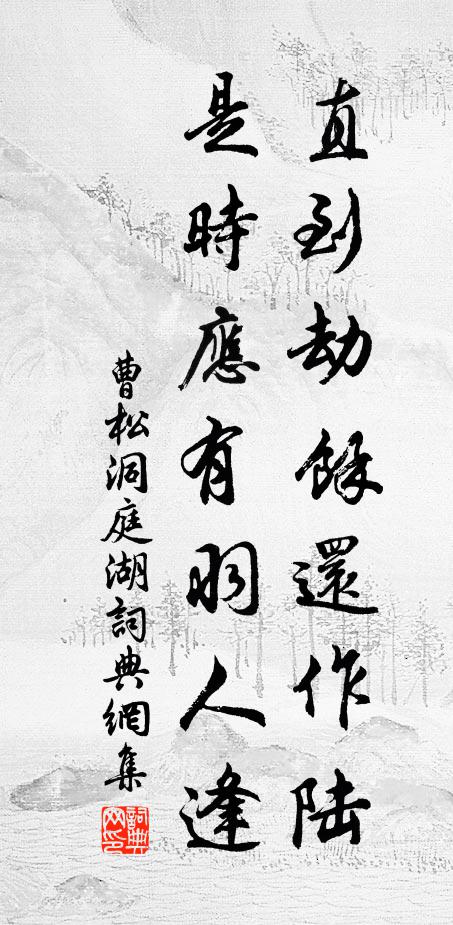 直到劫餘還作陆
是時應有羽人逢
曹松洞庭湖詞典網集
詞典
网印